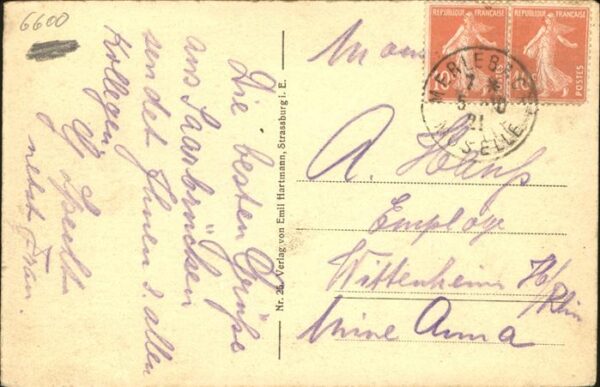 6600
Die besten Grüße
aus Saarbrücken
sendet Ihnen &. allen
Kollegen
G. Specht
nebst Frau.
Nr. 25. Verlag von Emil Hartmann, Strassburg i. E.
REPUBLIQUE FRANÇAISE
REPUBLIQUE FRANÇAISE
POSTES
MERLEB
7 *
21
MOSELLE
A.
Employe
Wittenheim H/
Rhin
Mine Anna